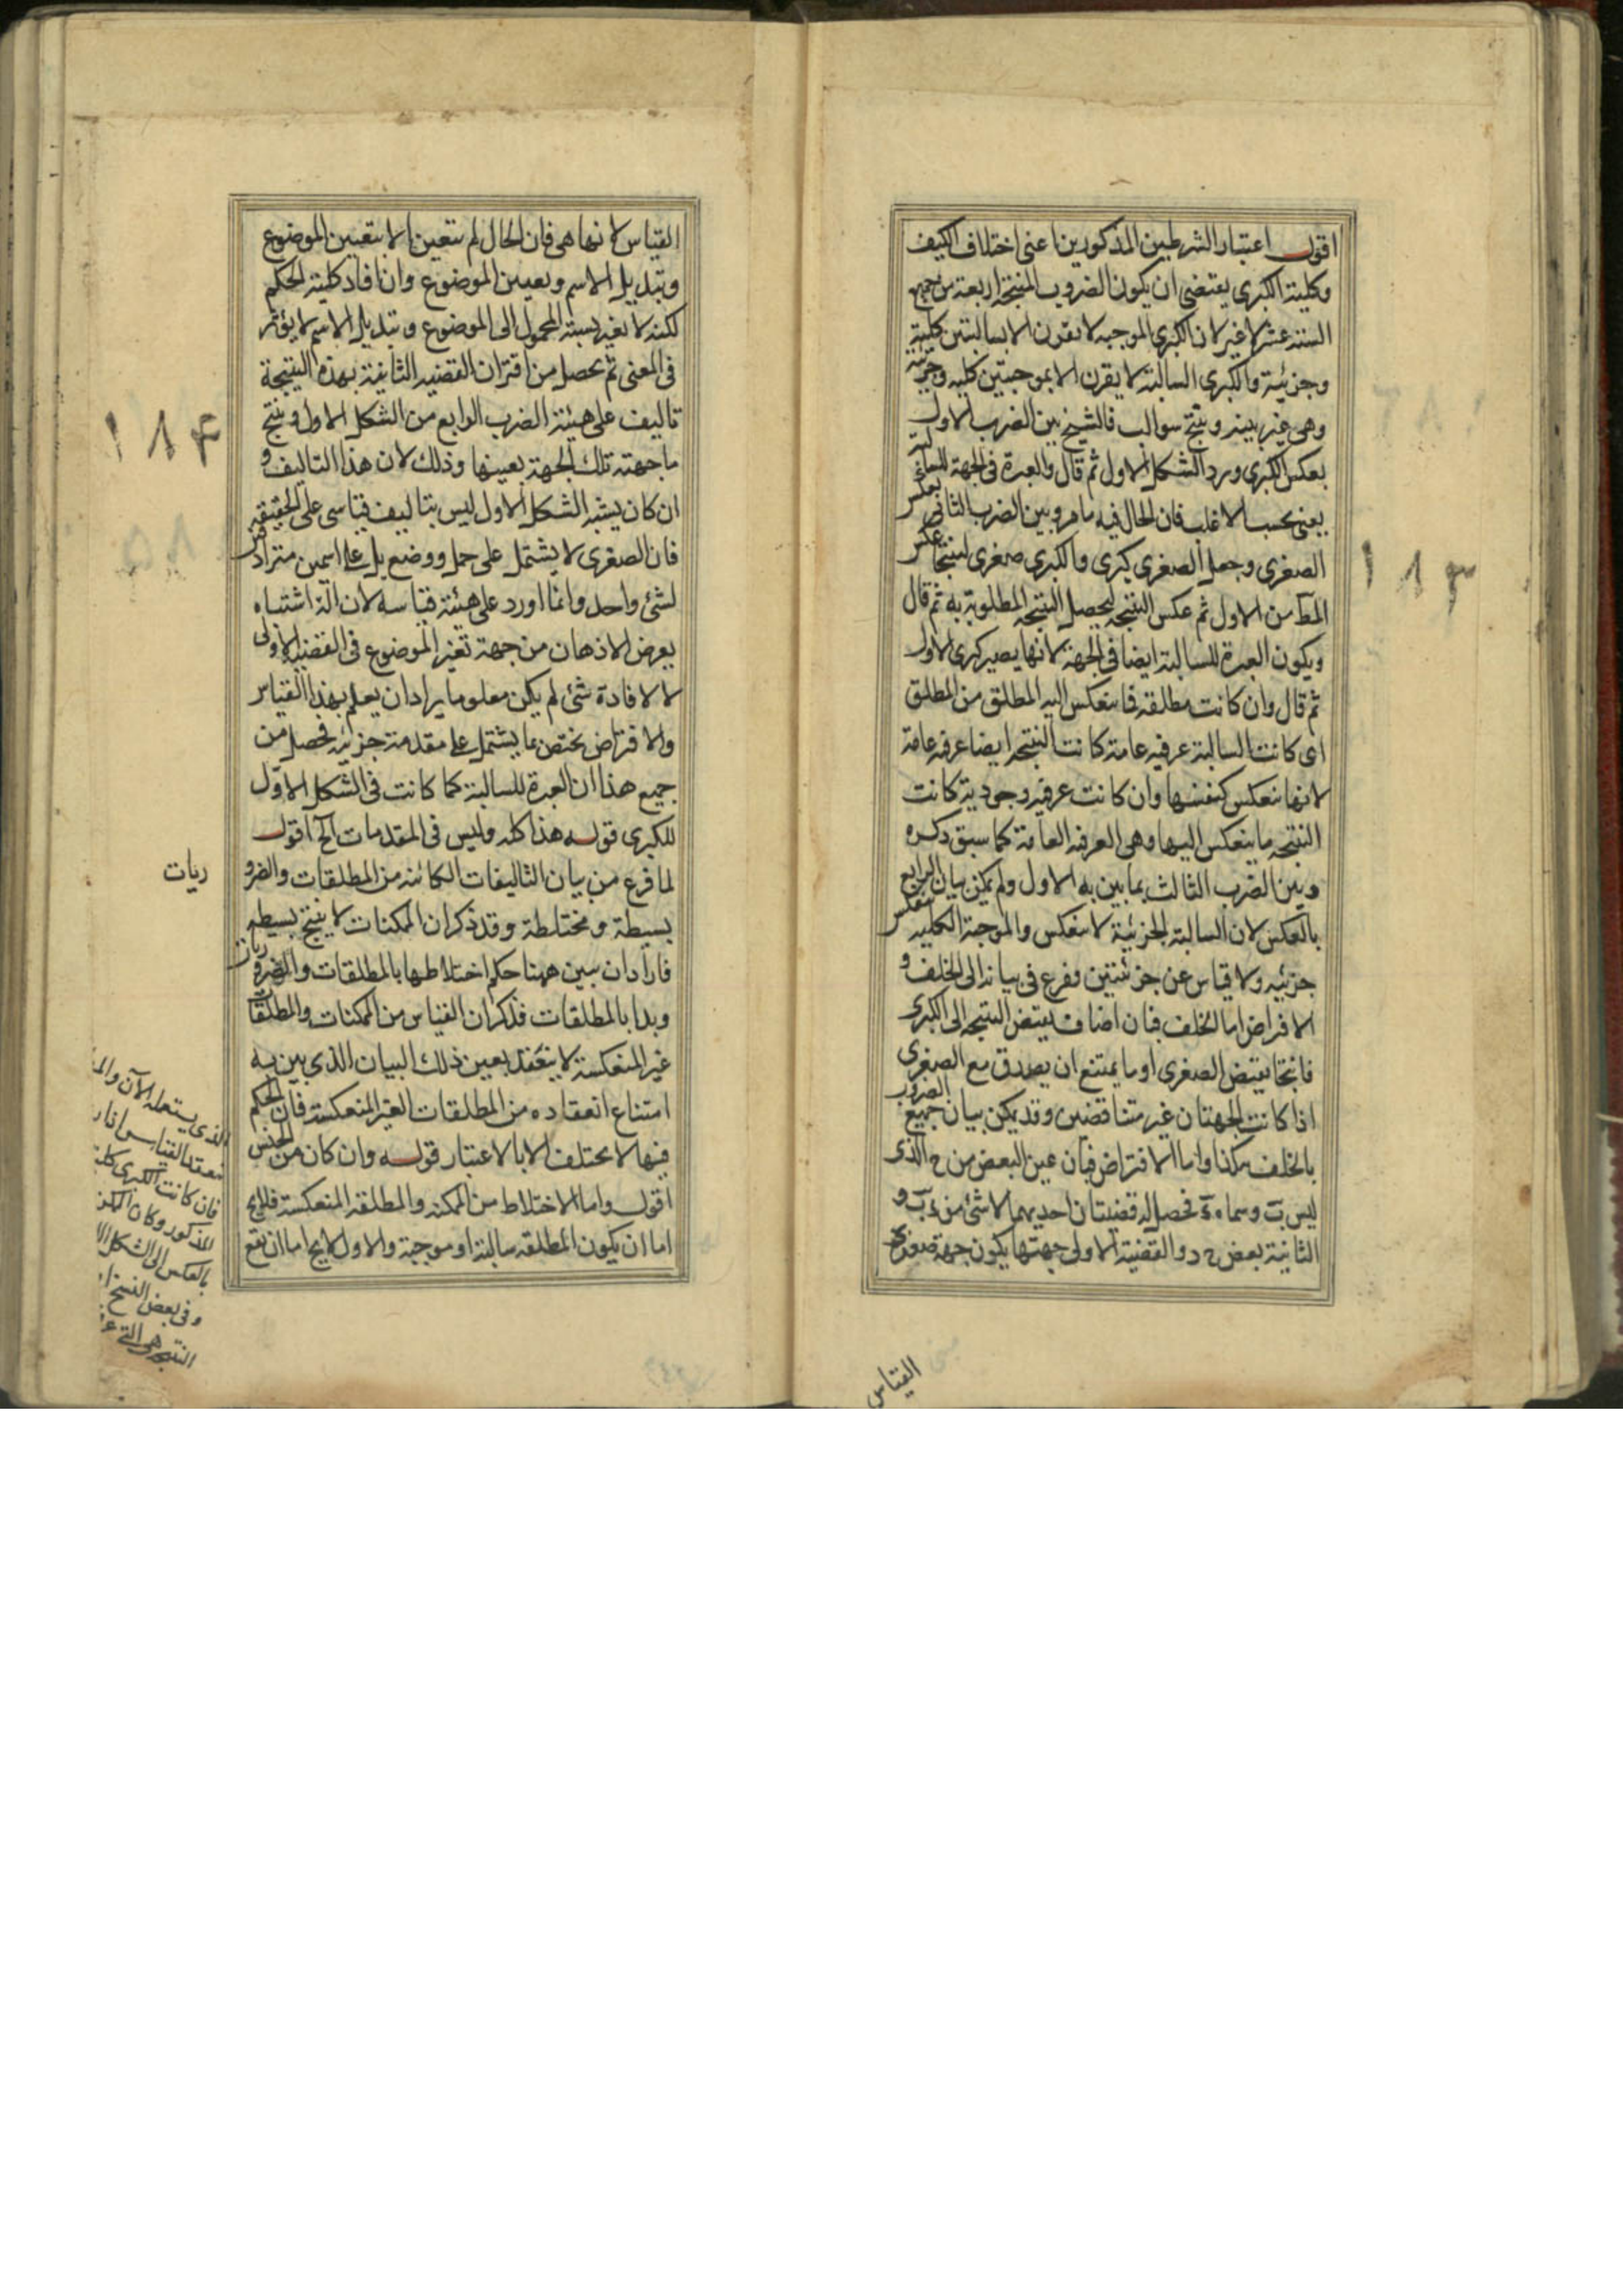 اقول اعتبار الشرطين المذكورين اعنى اختلاف الكيف
وكلية الكبرى يقتضى ان يكون الضروب المنتجة اربعة من جميع
الستة عشر لا غير لان الكبرى الموجبه لا تقرن الا بسالبتين كلية
وجزئية والكبرى السالبة لا يقرن الا بموجبتين كليه وجزئيه
وهى غير بينه وينتج سوالب فالشيخ بين الضرب الاول
بعكس الكبرى ورد الشكل الاول ثم قال والعبرة فى الجهة للسالبة
يعنى بحسب الاغلب فان الحال فيه ما مر وبين الضرب الثانى بعكس
الصغرى وجعل الصغرى كبرى والكبرى صغرى لينتجا عكس
المط من الاول ثم عكس النتيجه ليحصل النتيجه المطلوبة به ثم قال
ويكون العبرة للسالبة ايضا فى الجهة لانها يصير كبرى الاول
ثم قال وان كانت مطلقه فما ينعكس اليه المطلق من المطلق
اى كانت السالبة عرفيه عامة كانت النتيجه ايضا عرفيه عامة
لانها ينعكس كنفسها وان كانت عرفيه وجودية كانت
النتيجه ما ينعكس اليها وهى العرفيه العامة كما سبق ذكره
وبين الضرب الثالث بما بين به الاول ولم يمكن بيان الرابع
بالعكس لان السالبة الجزئية لا ينعكس والموجبة الكلية ينعكس
جزئيه ولا قياس عن جزئيتين ففرع فى بيانه الى الخلف و
الافتراض اما الخلف فبان اضاف نقيض النتيجه الى الكبرى
فانتجا نقيض الصغرى او ما يمتنع ان يصدق مع الصغرى
اذا كانت الجهتان غير متناقضين وقد يمكن بيان جميع الضروب
بالخلف هكذا واما الافتراض فبان عين البعض من ج الذى
ليس ب وسماه د فحصل له قضيتان احديهما لا شئ من د ب و
الثانية بعض ج د والقضية الاولى جهتها يكون جهة صغرى
القياس
١٨٣
القياس لانها هى فان الحال لم يتعين الا بتعيين الموضوع
وتبديل الاسم وتعيين الموضوع وان افاد كلية الحكم
لكنه لا يغير نسبة المحمول الى الموضوع وتبديل الاسم لا يؤثر
فى المعنى ثم يحصل من اقتران القضيه الثانية بهذه النتيجة
تاليف على هيئة الضرب الرابع من الشكل الاول وينتج
ما جهته تلك الجهة بعينها وذلك لان هذا التاليف و
ان كان يشبه الشكل الاول ليس بتاليف قياسى على الحقيقه
فان الصغرى لا يشتمل على حمل ووضع بل على اسمين مترادفين
لشئ واحد وانما اورد على هيئة قياسه لازالة اشتباه
يعرض الاذهان من جهة تغير الموضوع فى القضيه الاولى
لا لافادة شئ لم يكن معلوما يراد ان يعلم بهذا القياس
والافتراض يختص بما يشتمل على مقدمة جزئيه فحصل من
جميع هذا ان العبرة للسالبة كما كانت فى الشكل الاول
للكبرى قوله هذا كله وليس فى المقدمات الخ اقول
لما فرغ من بيان التاليفات الكائنه من المطلقات والضرو
ريات
بسيطة ومختلطة وقد ذكر ان الممكنات لا ينتج بسيطه
فاراد ان يبين ههنا حكم اختلاطها بالمطلقات والضروريات
وبدا بالمطلقات فذكر ان القياس من الممكنات والمطلقات
غير المنعكسة لا ينعقد بعين ذلك البيان الذى بين به
امتناع انعقاده من المطلقات الغير المنعكسة فان الحكم
فيها لا يختلف الا بالاعتبار قوله وان كان من الجنس
اقول واما الاختلاط من الممكنه والمطلقه المنعكسة فلايخ
اما ان يكون المطلقه سالبة او موجبة والاول لايخ اما ان يقع
١٨٤
الذى يستعمله الآن
فان كانت الكبرى كلية
المذكور وكان
بالعكس الى الشكل
وفى بعض النسخ